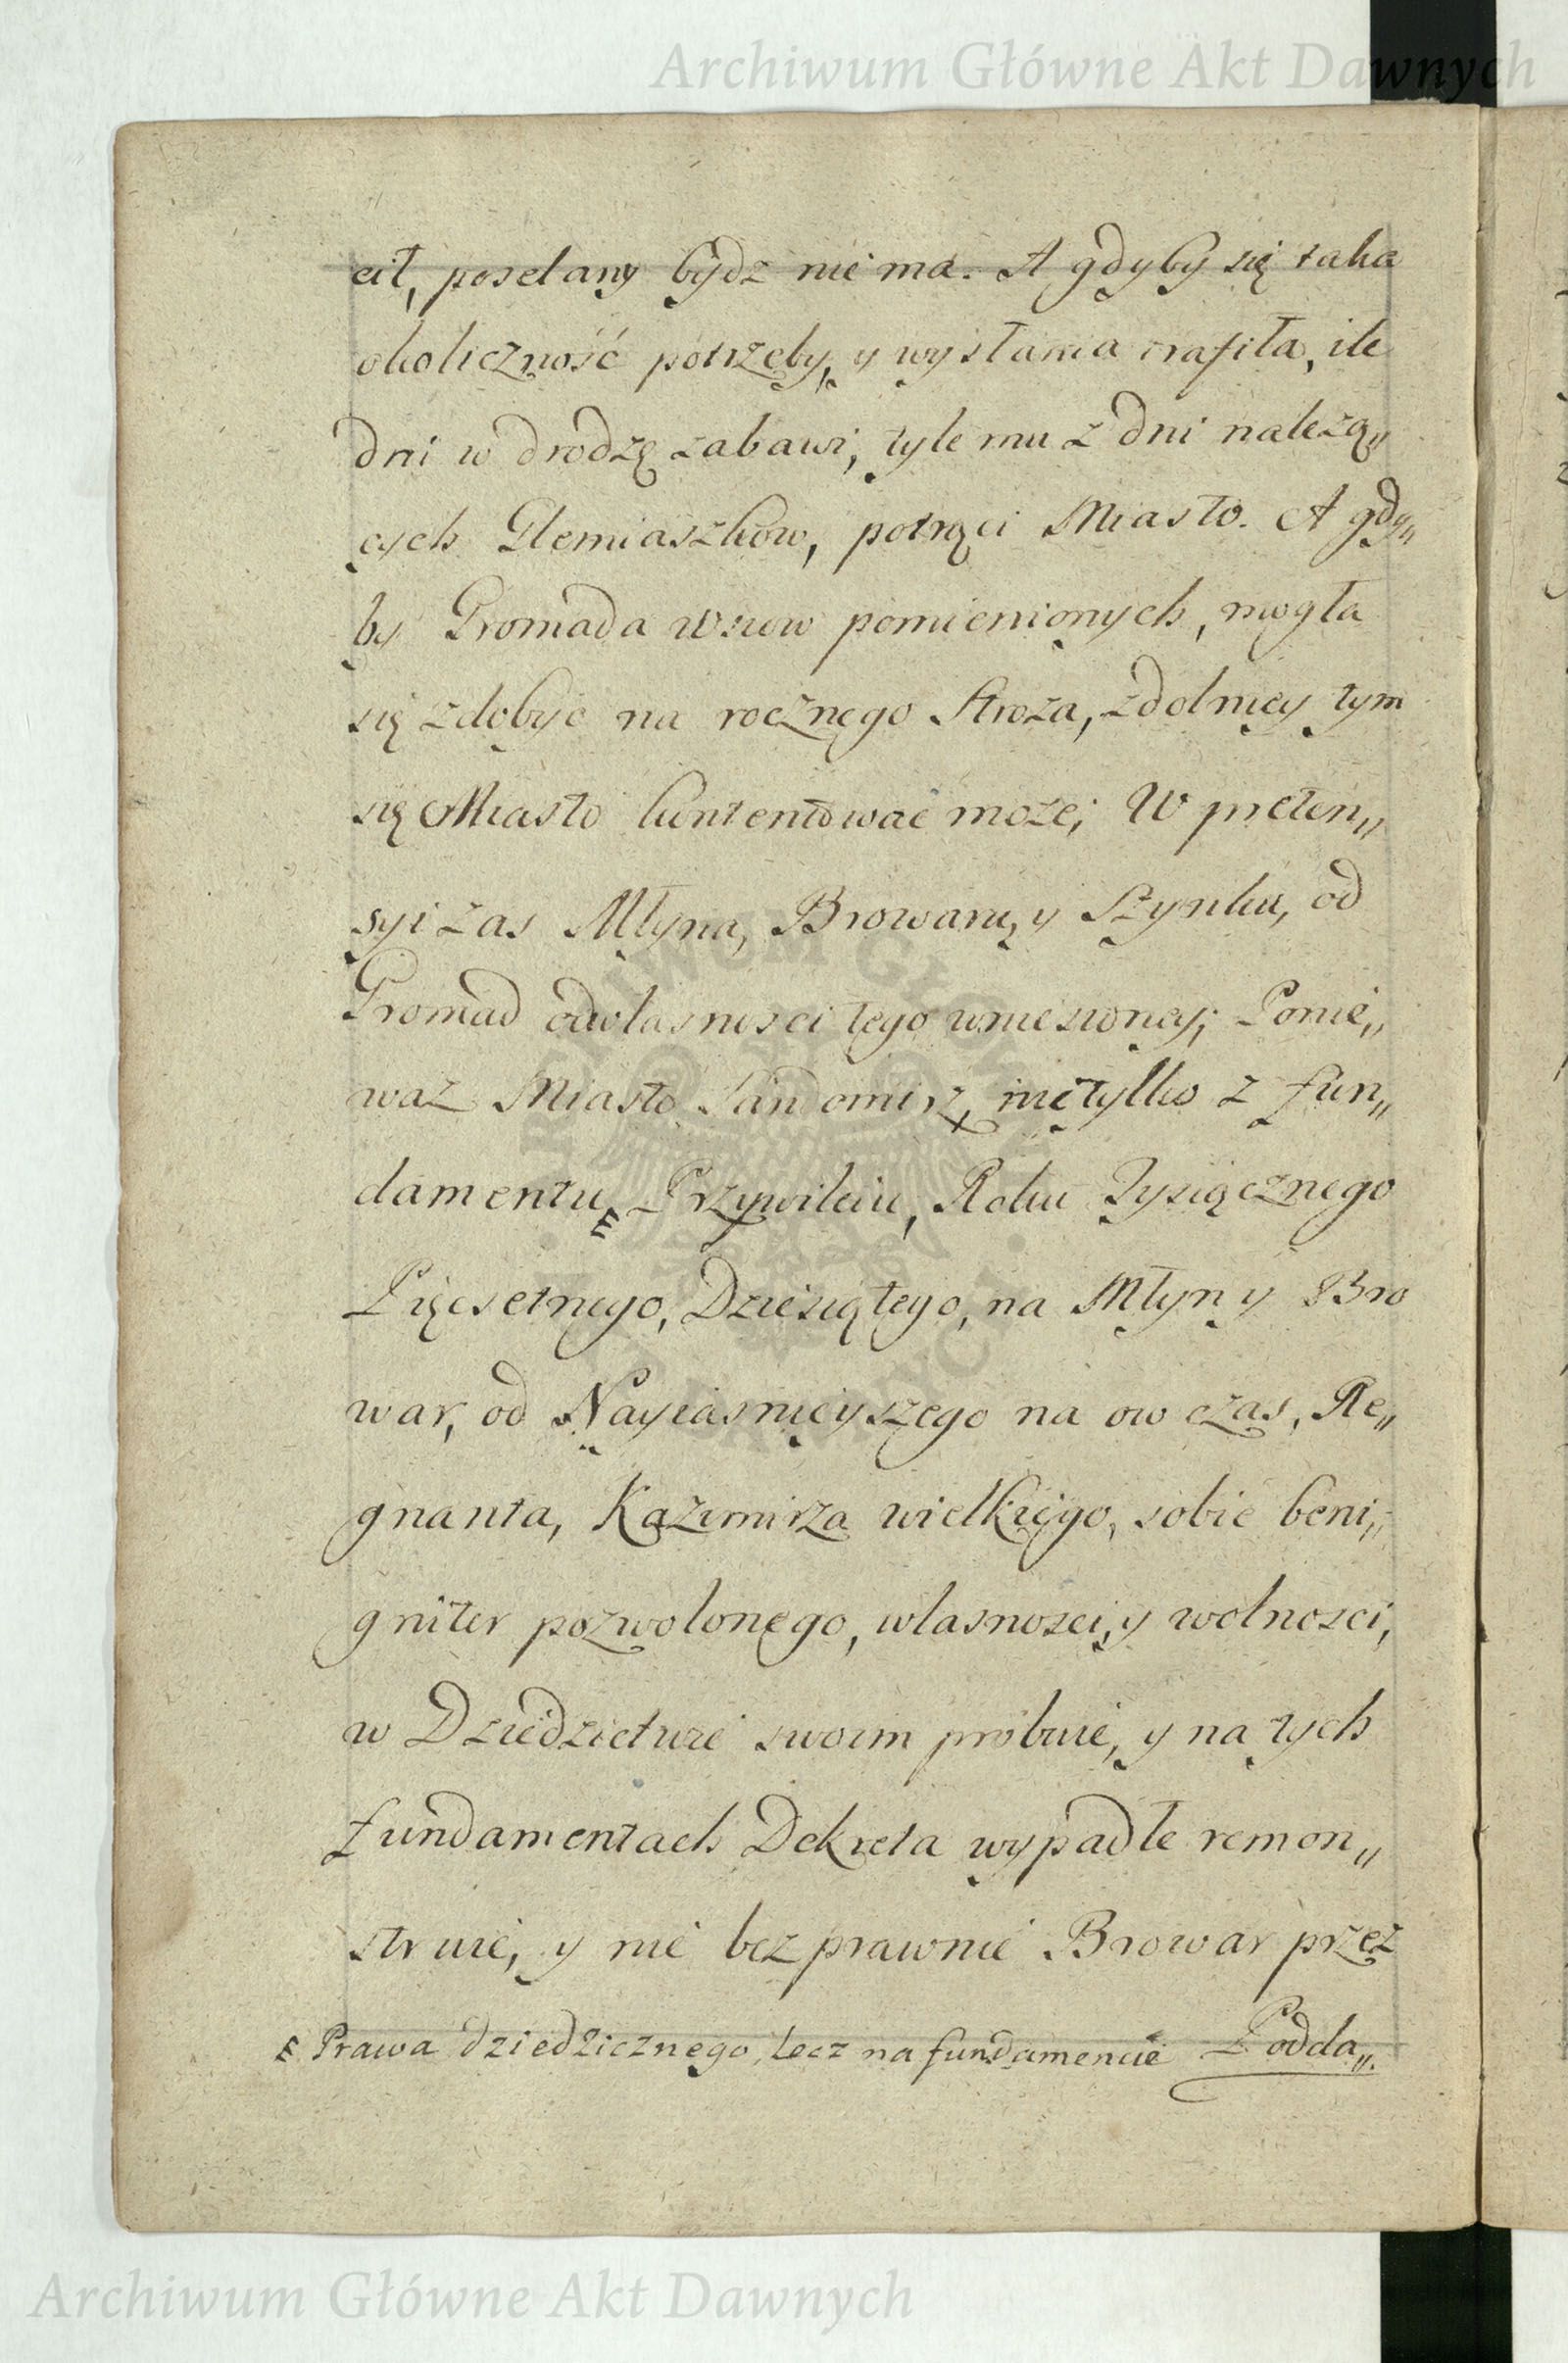 Archiwum Główne Akt Dawnych
cił, posełany bydz nie ma. A gdyby się taka
okoliczność potrzeby, y wysłania trafiła, ile
dni w drodzę zabawi, tyle mu z dni należą„
cych Glemiaszkow, potrąci Miasto. A gdy„
by Gromada Wsiow pomienionych, mogła
się zdobyc na rocznego Stroza, zdolniey tym
się Miasto kuntentowac moze; W preten„
syi zas Młyna, Browaru, y Szynku, od
Gromad o własnosci tego wniesioney; Ponie„
waz Miasto Sandomirz, nietylko z fun„
damentu Przywileiu, Roku Tysiącznego
Pięcsetnego, Dziesiątego, na Młyn y Bro
war, od Nayiasnieyszego na ow czas, Re„
gnanta, Kazimirza wielkiego, sobie beni„
gniter pozwolonego, własnosci, y wolnosci,
w Dziedzictwie swoim probuie, y na tych
fundamentach Dekreta wypadłe remon„
struie, y nie bezprawnie Browar przez
Prawa dziedzicznego, lecz na fundamencie Podda„
Archiwum Główne Akt Dawnych